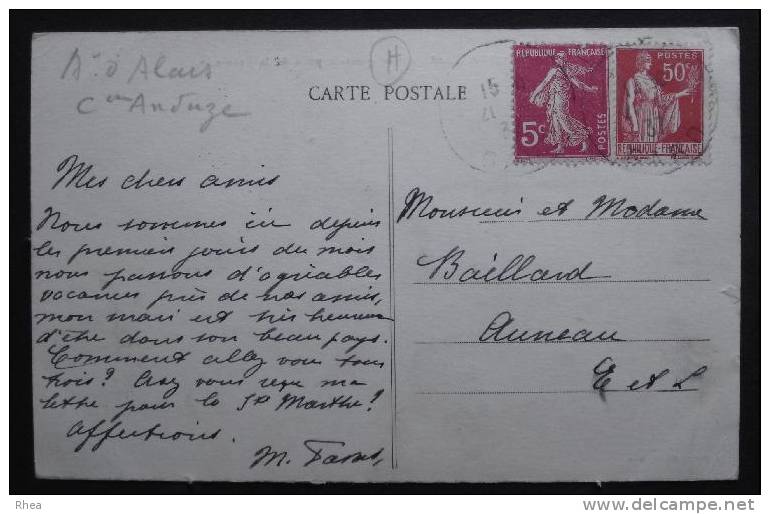 Aᵗ d'Alais
Cᵒⁿ Anduze
H
CARTE POSTALE
REPUBLIQUE FRANÇAISE
5c
POSTES
POSTES
50c
REPUBLIQUE-FRANÇAISE
15
21
Mes chers amis
Nous sommes ici depuis
les premiers jours du mois
nous passons d'agréables
vacances près de nos amis,
mon mari est très heureux
d'être dans son beau pays.
Comment allez vous tous
trois? Avez vous reçu ma
lettre pour la Sᵗᵉ Marthe?
Affections.
M.
Monsieur et Madame
Baillard
Auneau
E et L
Rhea
delcampe.net